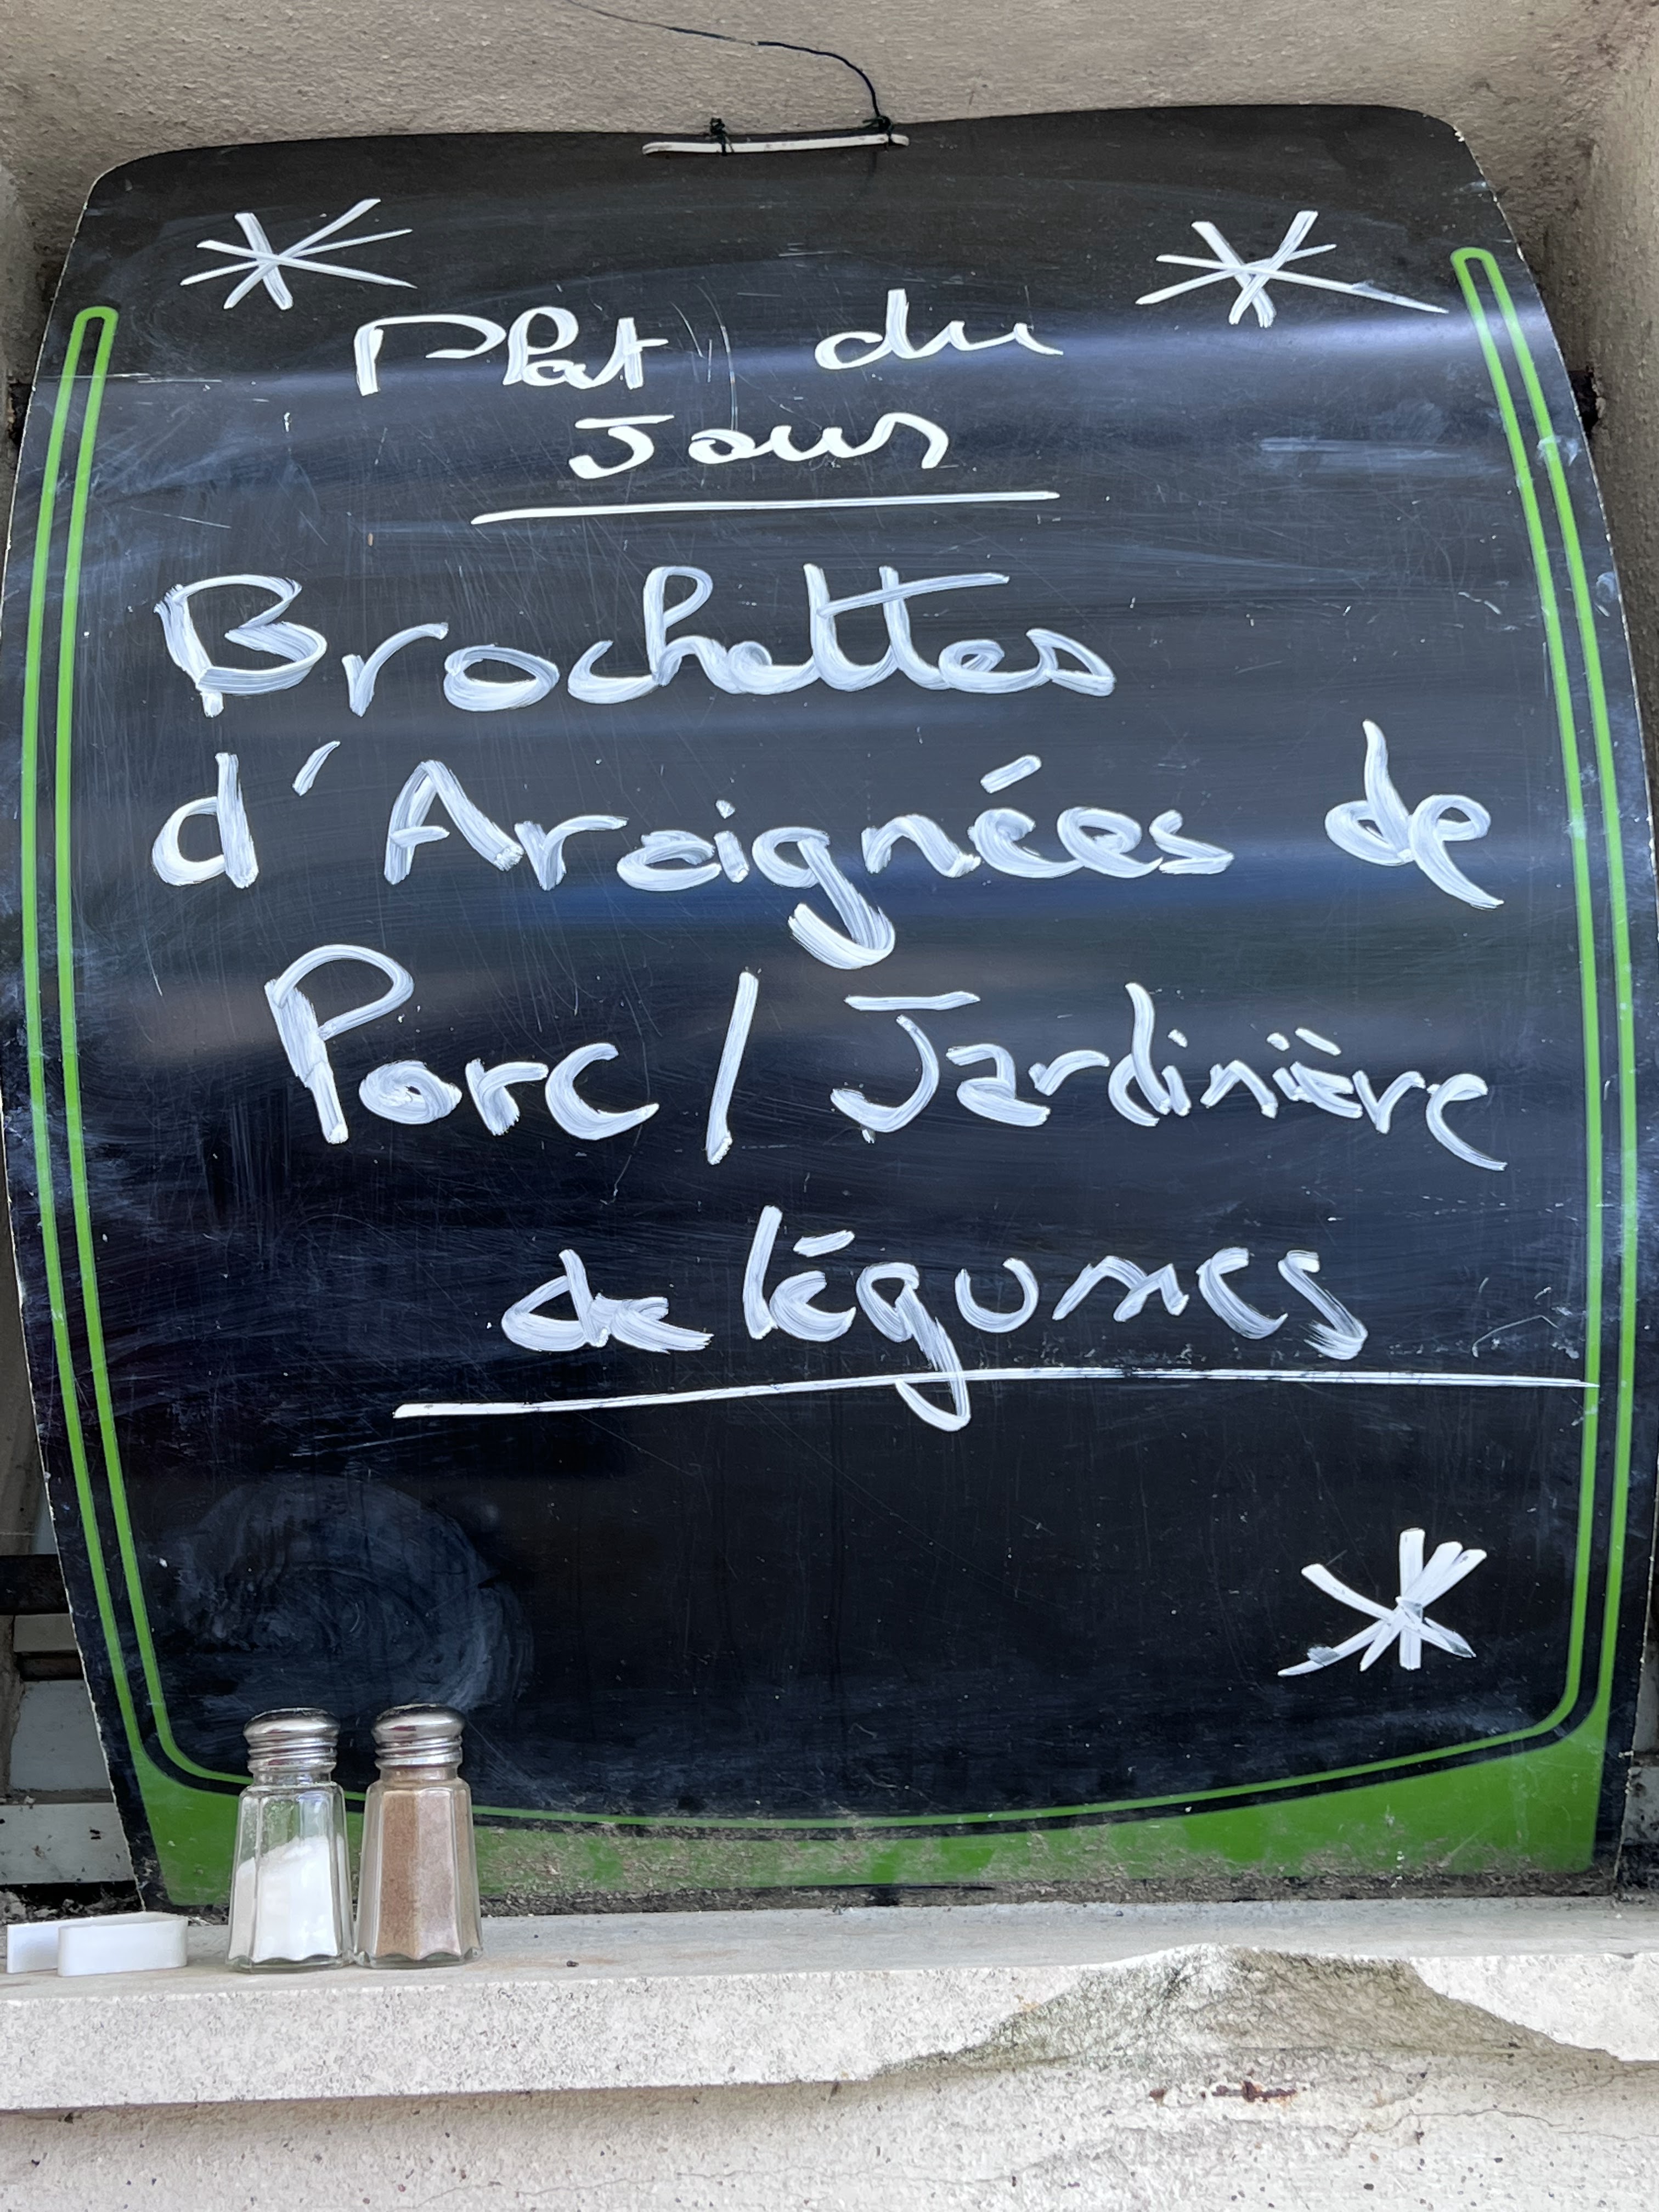 Plat du
Jour
Brochettes
d'Araignées de
Porc / Jardinière
de légumes